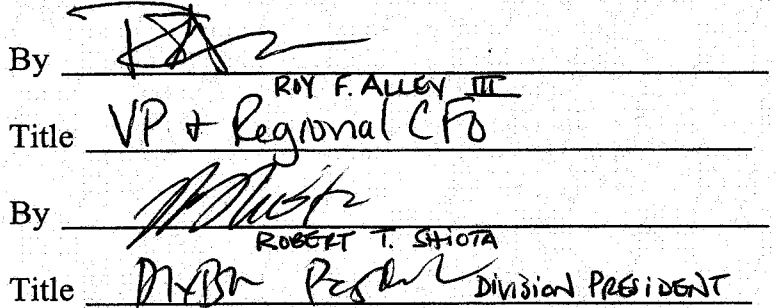 By
ROY F. ALLEY III
Title VP + Regional CFO
By
ROBERT T. SHIOTA
Title DIVISION PRESIDENT